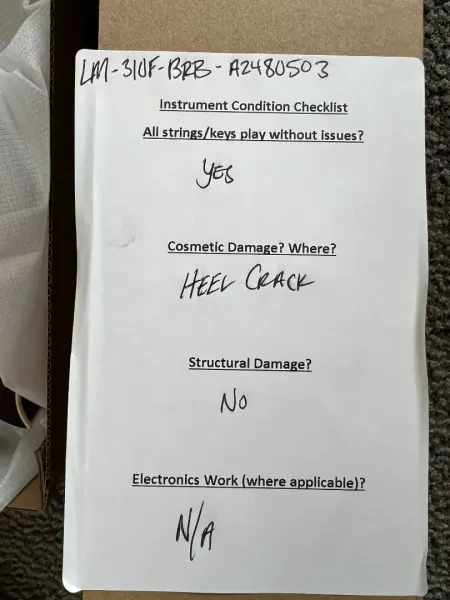 LM-310F-BRB-A2480503
Instrument Condition Checklist
All strings/keys play without issues?
YES
Cosmetic Damage? Where?
HEEL CRACK
Structural Damage?
No
Electronics Work (where applicable)?
N/A